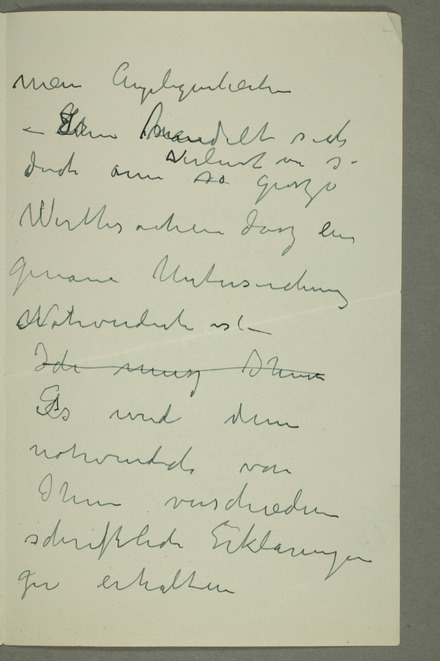 meine Angelegenheiten
– Denn handelt sich
Verlust von s-
doch um so grosze
Werthsachen dasz ein
genaue Untersuchung
Notwendich ist –
Ich musz Ihnen
Es wird dann
notwendich von
Ihnen verschieden
schriftlich Erklarungen
zu erhalten